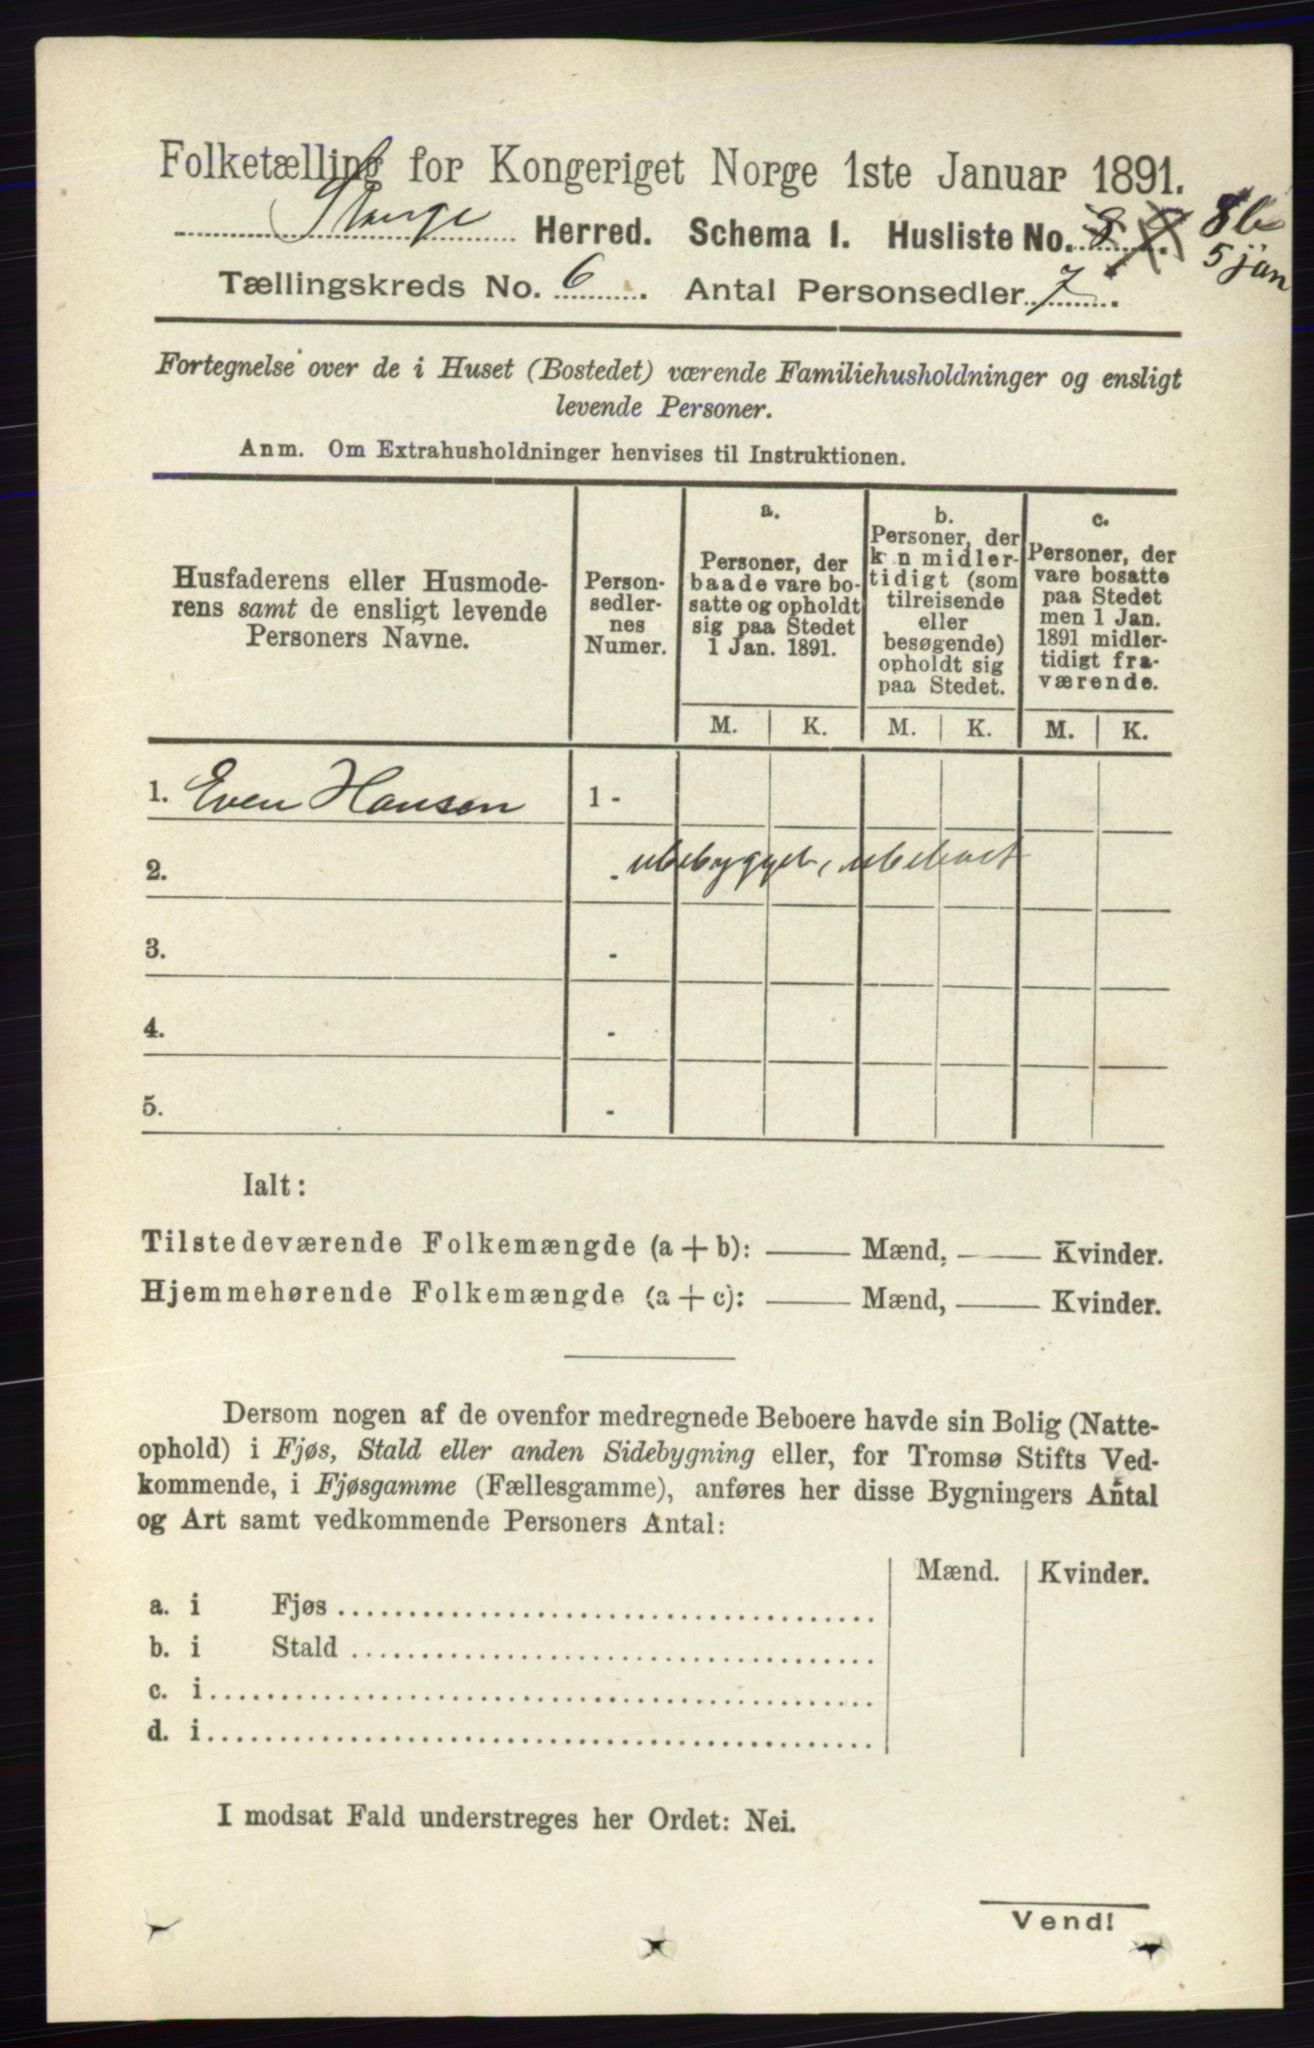 Folketælling for Kongeriget Norge 1ste Januar 1891.
Stange Herred. Schema 1. Husliste No. 8 8b
5 jan
Tællingskreds No. 6 . Antal Personsedler 7 .
Fortegnelse over de i Huset (Bostedet) værende Familiehusholdninger og ensligt
levende Personer.
Anm. Om Extrahusholdninger henvises til Instruktionen.
Husfaderens eller Husmode-
rens samt de ensligt levende
Personers Navne.
Person-
sedler-
nes
Numer.
a.
Personer, der
baade vare bo-
satte og opholdt
sig paa Stedet
1 Jan. 1891.
b.
Personer, der
k n midler-
tidigt (som
tilreisende
eller
besøgende)
opholdt sig
paa Stedet.
c.
Personer, der
vare bosatte
paa Stedet
men 1 Jan.
1891 midler-
tidigt fra-
værende.
M. K. M. K. M. K.
1. Even Hansen 1 -
2. - ubebygget, ubeboet
3. -
4. -
5. -
Ialt:
Tilstedeværende Folkemængde (a + b): —— Mænd, —— Kvinder.
Hjemmehørende Folkemængde (a + c): —— Mænd, —— Kvinder.
Dersom nogen af de ovenfor medregnede Beboere havde sin Bolig (Natte-
ophold) i Fjøs, Stald eller anden Sidebygning eller, for Tromsø Stifts Ved-
kommende, i Fjøsgamme (Fællesgamme), anføres her disse Bygningers Antal
og Art samt vedkommende Personers Antal:
Mænd. Kvinder.
a. i Fjøs
b. i Stald
c. i
d. i
I modsat Fald understreges her Ordet: Nei.
Vend!